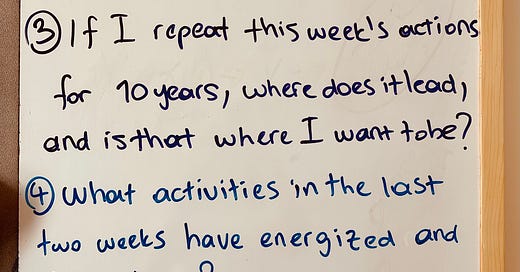 ③ If I repeat this week's actions
for 10 years, where does it lead,
and is that where I want to be?
④ What activities in the last
two weeks have energized and
?